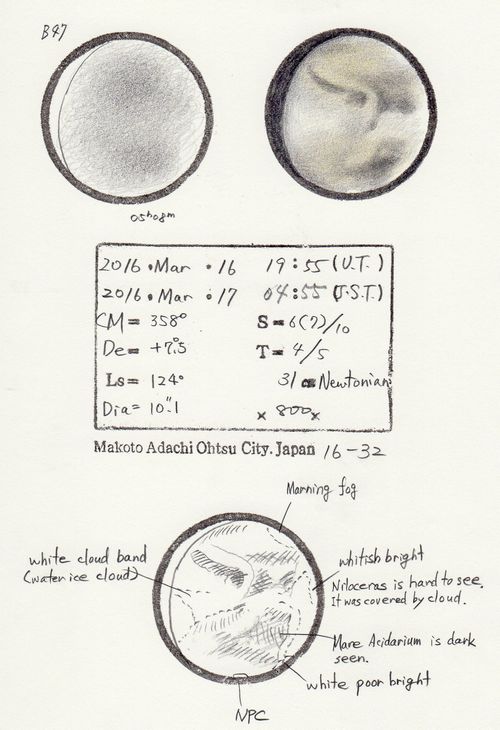 B47
05h08m
2016 . Mar . 16 19:55 (U.T.)
2016 . Mar . 17 04:55 (J.S.T)
CM= 358° S=6(7)/10
De= +7°.5 T=4/5
Ls= 124° 31 cm Newtonian
Dia= 10".1 × 800×
Makoto Adachi Ohtsu City. Japan 16-32
Morning fog
white cloud band
(water ice cloud)
whitish bright
Niloceras is hard to see.
It was covered by cloud.
Mare Acidarium is dark
seen.
white poor bright
NPC